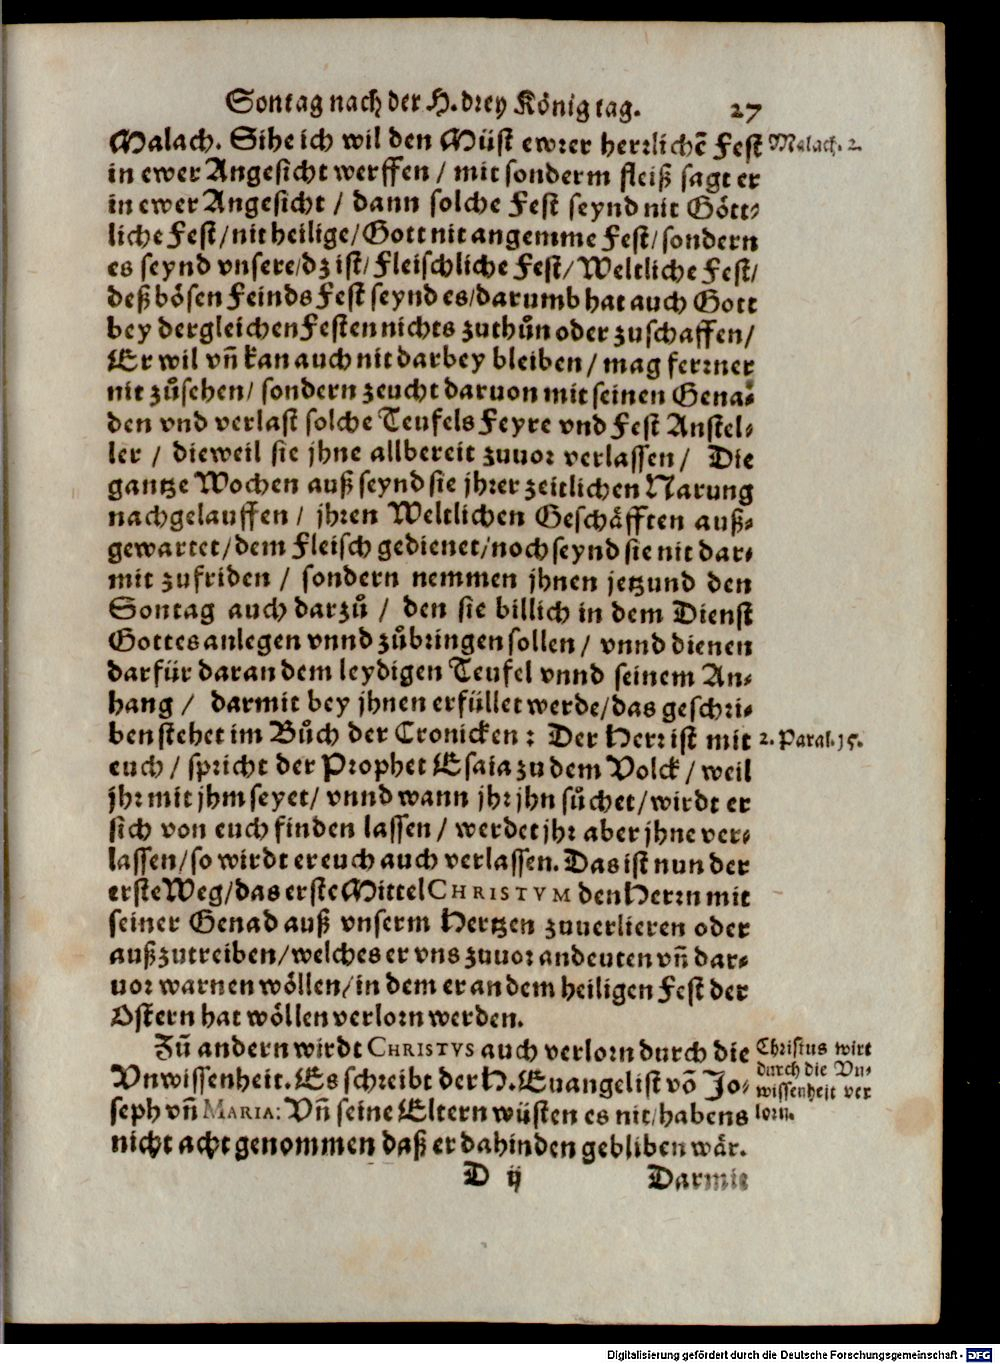 Sontag nach der H. drey König tag. 27
Malach. Sihe ich wil den Müst ewrer herrlichē Fest Malach. 2.
in ewer Angesicht werffen / mit sonderm fleiß sagt er
in ewer Angesicht / dann solche Fest seynd nit Gött-
liche Fest/ nit heilige/ Gott nit angemme Fest/ sondern
es seynd vnsere/ dz ist/ Fleischliche Fest/ Weltliche Fest/
deß bösen Feinds Fest seynd es/ darumb hat auch Gott
bey dergleichen Festen nichts zuthůn oder zuschaffen/
Er wil vñ kan auch nit darbey bleiben / mag ferrner
nit zůsehen/ sondern zeucht daruon mit seinen Gena-
den vnd verlast solche Teufels Feyre vnd Fest Anstel-
ler / dieweil sie jhne allbereit zuuor verlassen / Die
gantze Wochen auß seynd sie jhrer zeitlichen Narung
nachgelauffen / jhren Weltlichen Geschäfften auß-
gewartet/ dem Fleisch gedienet/ noch seynd sie nit dar-
mit zufriden / sondern nemmen jhnen jetzund den
Sontag auch darzů / den sie billich in dem Dienst
Gottes anlegen vnnd zůbringen sollen / vnnd dienen
darfür daran dem leydigen Teufel vnnd seinem An-
hang / darmit bey jhnen erfüllet werde/ das geschri-
ben stehet im Bůch der Cronicken : Der Herr ist mit 2. Paral. 15.
euch / spricht der Prophet Esaia zu dem Volck / weil
jhr mit jhm seyet/ vnnd wann jhr jhn sůchet/ wirdt er
sich von euch finden lassen / werdet jhr aber jhne ver-
lassen/ so wirdt er euch auch verlassen. Das ist nun der
erste Weg/ das erste Mittel CHRISTVM den Herrn mit
seiner Genad auß vnserm Hertzen zuuerlieren oder
außzutreiben/ welches er vns zuuor andeuten vñ dar-
uor warnen wöllen/ in dem er an dem heiligen Fest der
Ostern hat wöllen verlorn werden.
Zů andern wirdt CHRISTVS auch verlorn durch die
Vnwissenheit. Es schreibt der H. Euangelist vō Jo-
seph vñ MARIA: Vñ seine Eltern wüsten es nit/ habens
nicht acht genommen daß er dahinden gebliben wär.
Christus wirt
durch die Vn-
wissenheit ver
lorn.
D ij Darmit
Digitalisierung gefördert durch die Deutsche Forschungsgemeinschaft - DFG